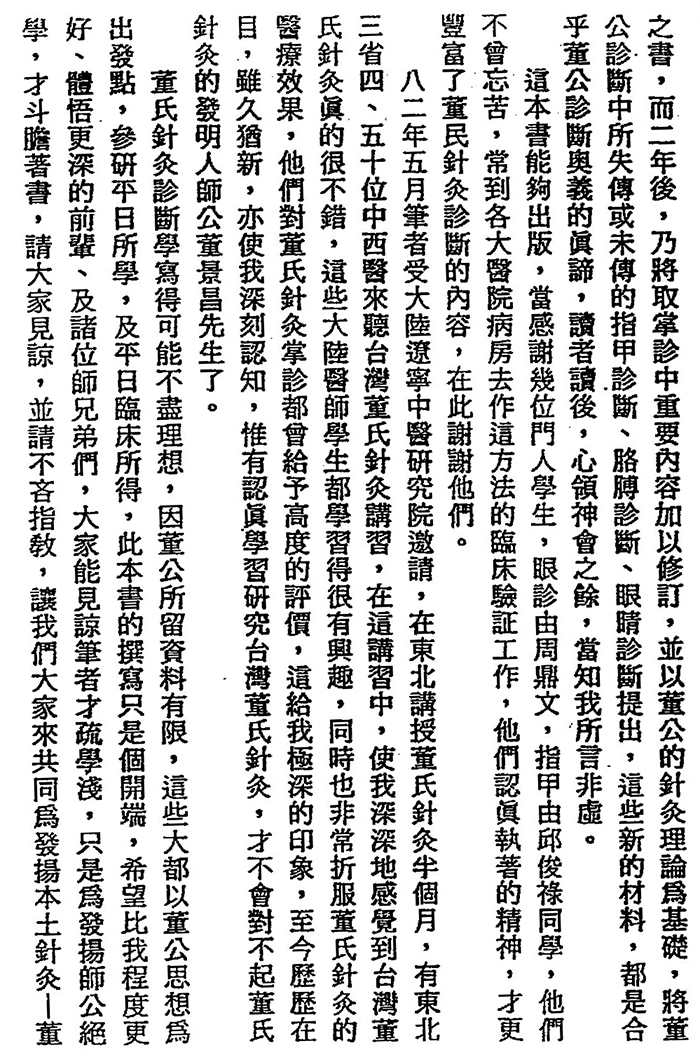 之書，而二年後，乃將取掌診中重要內容加以修訂，並以董公的針灸理論爲基礎，將董
公診斷中所失傳或未傳的指甲診斷、胳膊診斷、眼睛診斷提出，這些新的材料，都是合
乎董公診斷奧義的眞諦，讀者讀後，心領神會之餘，當知我所言非虛。
這本書能夠出版，當感謝幾位門人學生，眼診由周鼎文，指甲由邱俊祿同學，他們
不曾忘苦，常到各大醫院病房去作這方法的臨床驗証工作，他們認眞執著的精神，才更
豐富了董民針灸診斷的內容，在此謝謝他們。
八二年五月筆者受大陸遼寧中醫研究院邀請，在東北講授董氏針灸半個月，有東北
三省四、五十位中西醫來聽台灣董氏針灸講習，在這講習中，使我深深地感覺到台灣董
氏針灸眞的很不錯，這些大陸醫師學生都學習得很有興趣，同時也非常折服董氏針灸的
醫療效果，他們對董氏針灸掌診都曾給予高度的評價，這給我極深的印象，至今歷歷在
目，雖久猶新，亦使我深刻認知，惟有認眞學習研究台灣董氏針灸，才不會對不起董氏
針灸的發明人師公董景昌先生了。
董氏針灸診斷學寫得可能不盡理想，因董公所留資料有限，這些大都以董公思想爲
出發點，參研平日所學，及平日臨床所得，此本書的撰寫只是個開端，希望比我程度更
好、體悟更深的前輩、及諸位師兄弟們，大家能見諒筆者才疏學淺，只是爲發揚師公絕
學，才斗膽著書，請大家見諒，並請不吝指敎，讓我們大家來共同爲發揚本土針灸—董